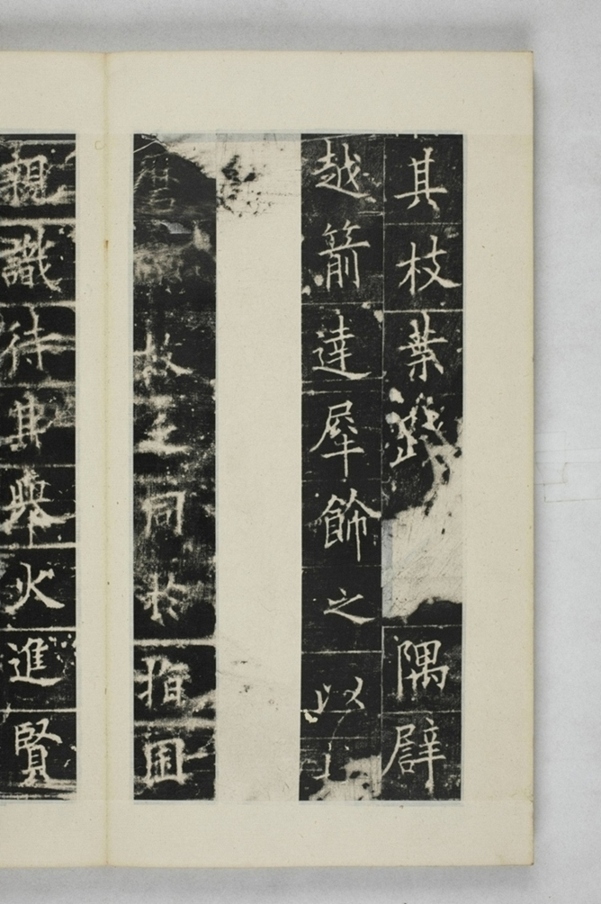 其枝葉隅譬
越箭達犀飾之以
故同於指囷
親識待其舉火進賢